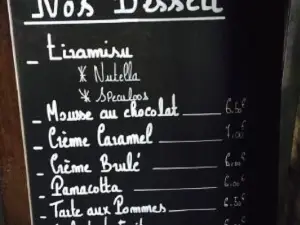 Nos Dessert
- Tiramisu
* Nutella
* Speculoos
- Mousse au chocolat
- Crème Caramel
- Crème Brulé
- Panacotta
- Tarte aux Pommes